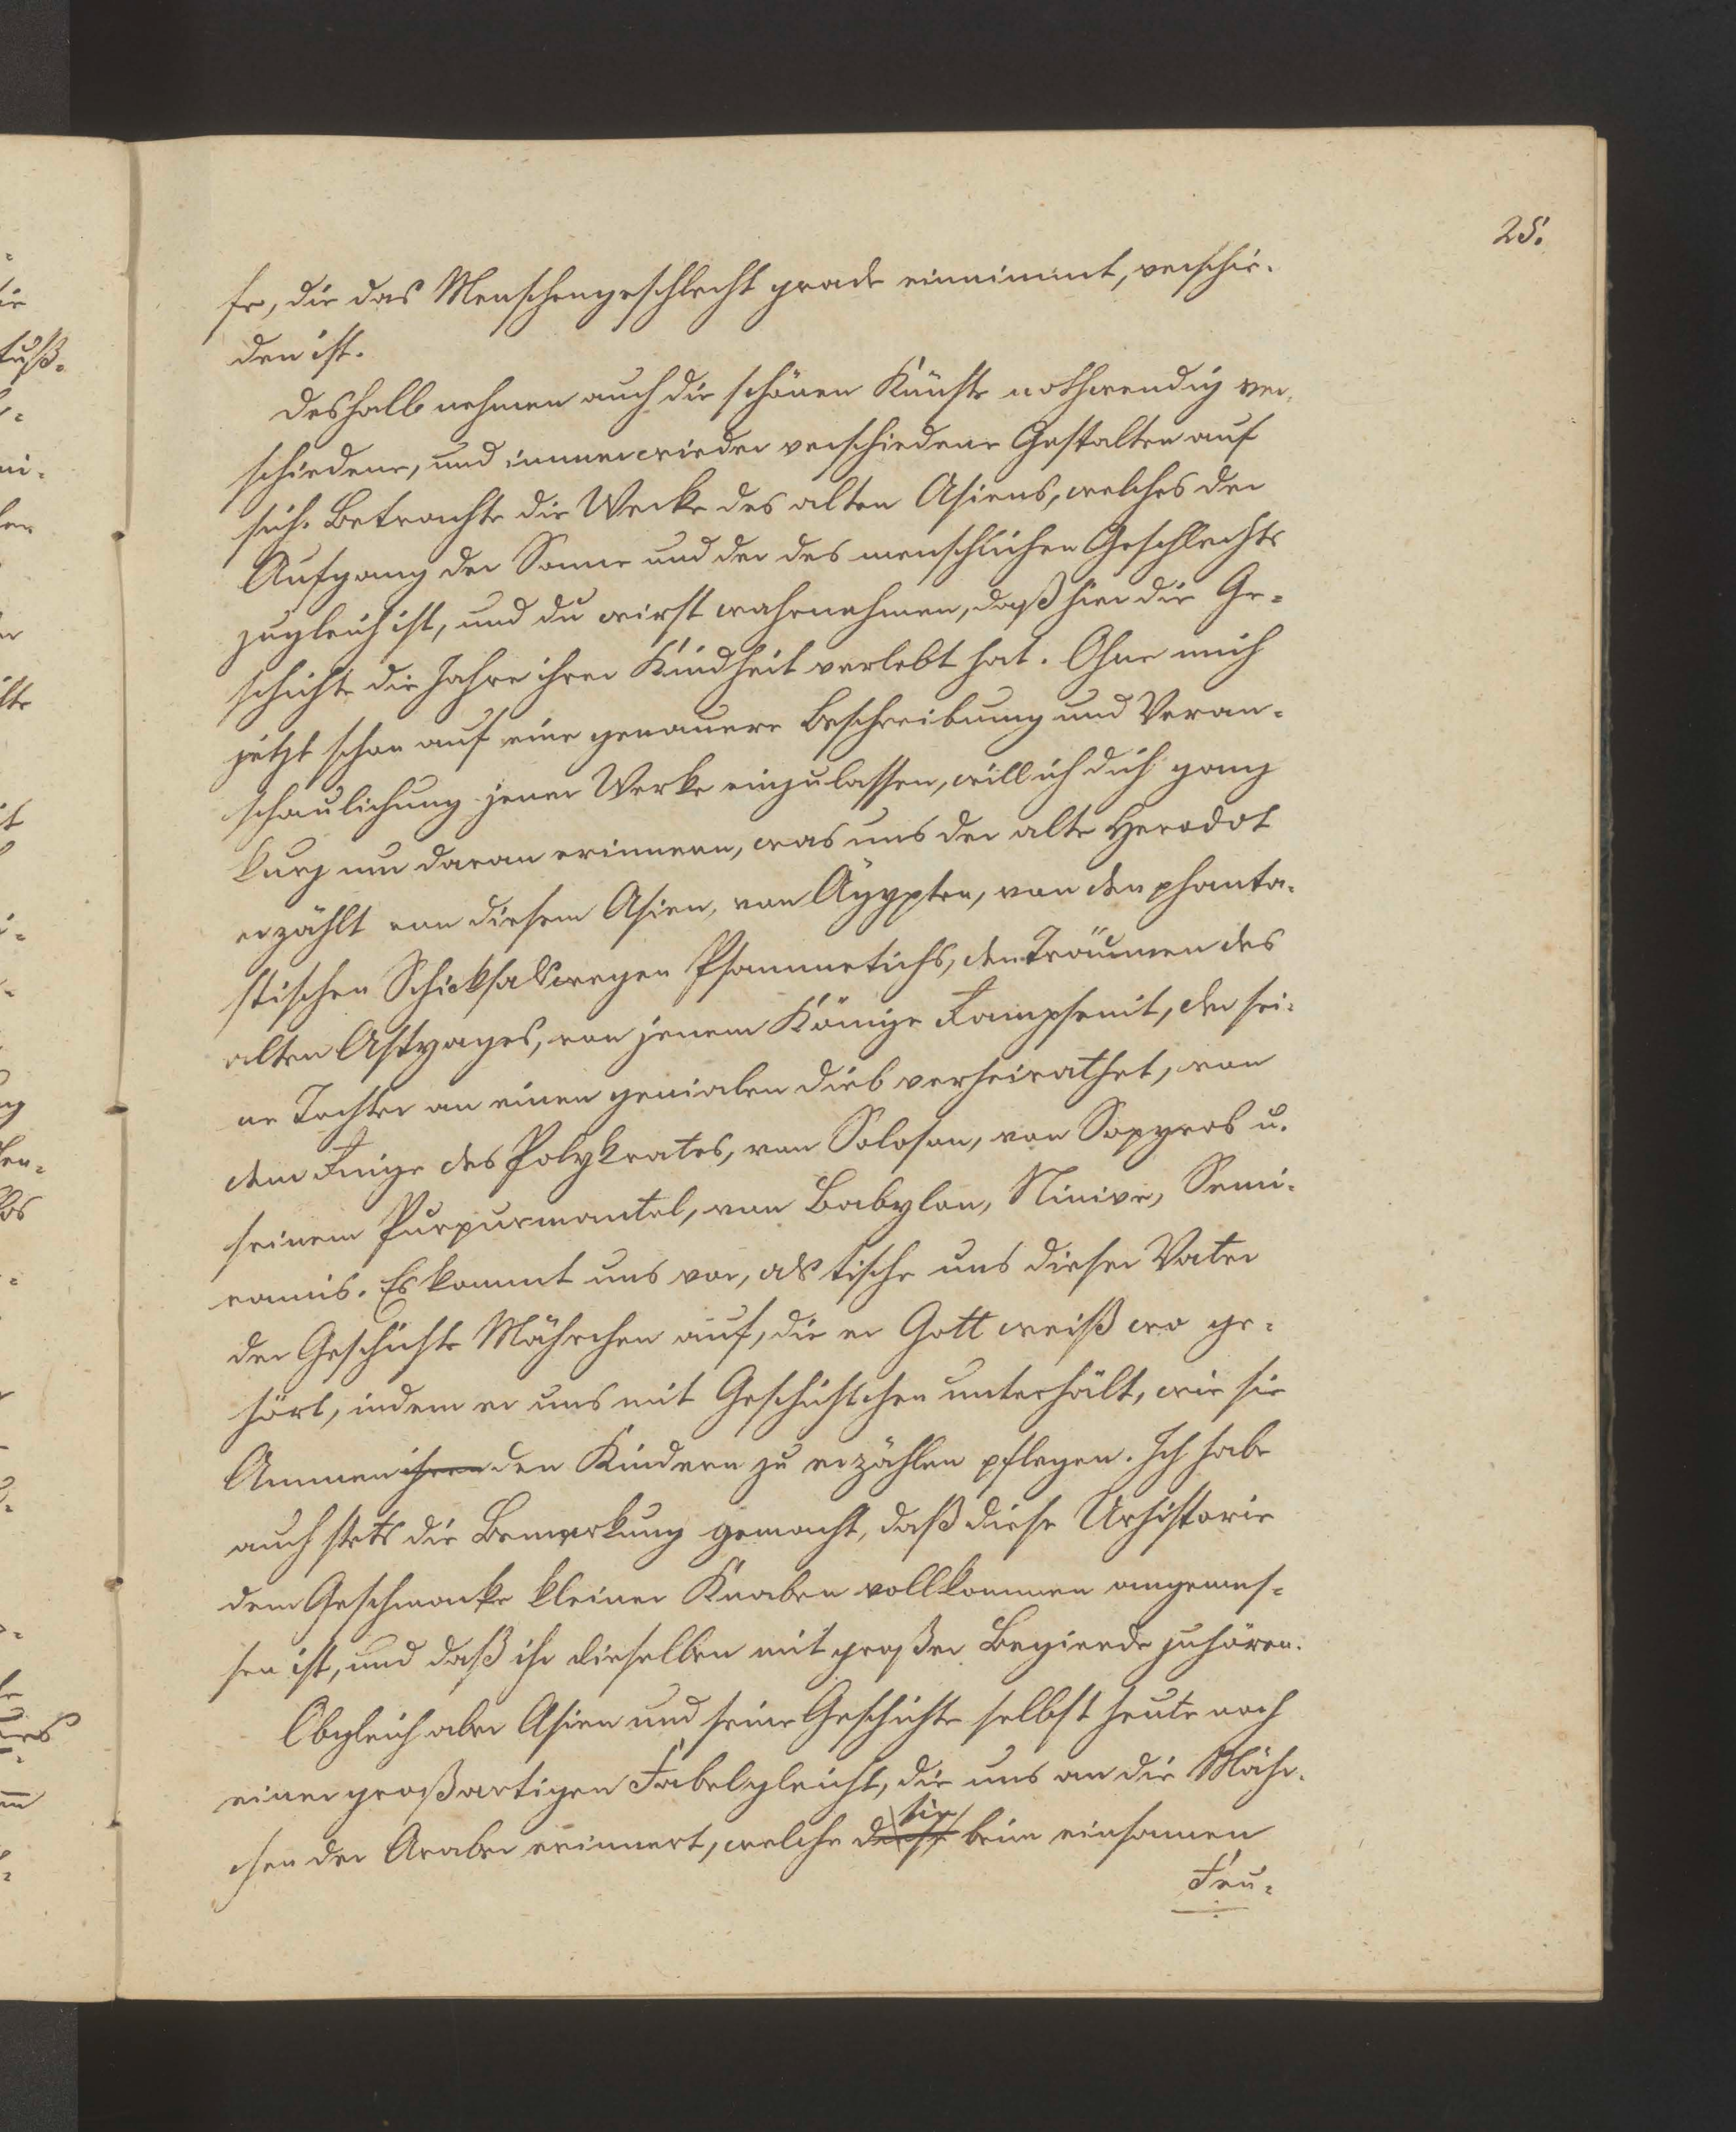 25.
fe, die das Menschengeschlecht grade einnimmt, verschie-
den ist.
Deshalb nehmen auch die schönen Künste nothwendig ver-
schiedene, und immer wieder verschiedene Gestalten auf
sich. Betrachte die Werke des alten Asiens, welches der
Aufgang der Sonne und der des menschlichen Geschlechts
zugleich ist, und du wirst wahrnehmen, daß hier die Ge-
schichte die Jahre ihrer Kindheit verlebt hat. Ohne mich
jetzt schon auf eine genauere Beschreibung und Veran-
schaulichung jener Werke einzulassen, will ich dich ganz
kurz nur daran erinnern, was uns der alte Herodot
erzählt von diesem Asien, von Ägypten, von den phanta-
stischen Schicksalswegen Psammetichs, den Träumen des
alten Astyages, von jenem Könige Rampsenit, der sei-
ne Tochter an einen genialen Dieb verheirathet, von
dem Ringe des Polykrates, von Soloson, von Sopyros u.
seinem Purpurmantel, von Babylon, Ninive, Semi-
ramis. Es kommt uns vor, als tische uns dieser Vater
der Geschichte Mährchen auf, die er Gott weiß wo ge-
hört, indem er uns mit Geschichtchen unterhält, wie sie
Ammen ihren den Kindern zu erzählen pflegen. Ich habe
auch stets die Bemerkung gemacht, daß diese Urhistorie
dem Geschmacke kleiner Knaben vollkommen angemes-
sen ist, und daß ihr dieselben mit großer Begierde zuhören.
Obgleich aber Asien und seine Geschichte selbst heute noch
einer großartigen Fabel gleicht, die uns an die Mähr-
sie
chen der Araber erinnert, welche diese beim einsamen
Feu-